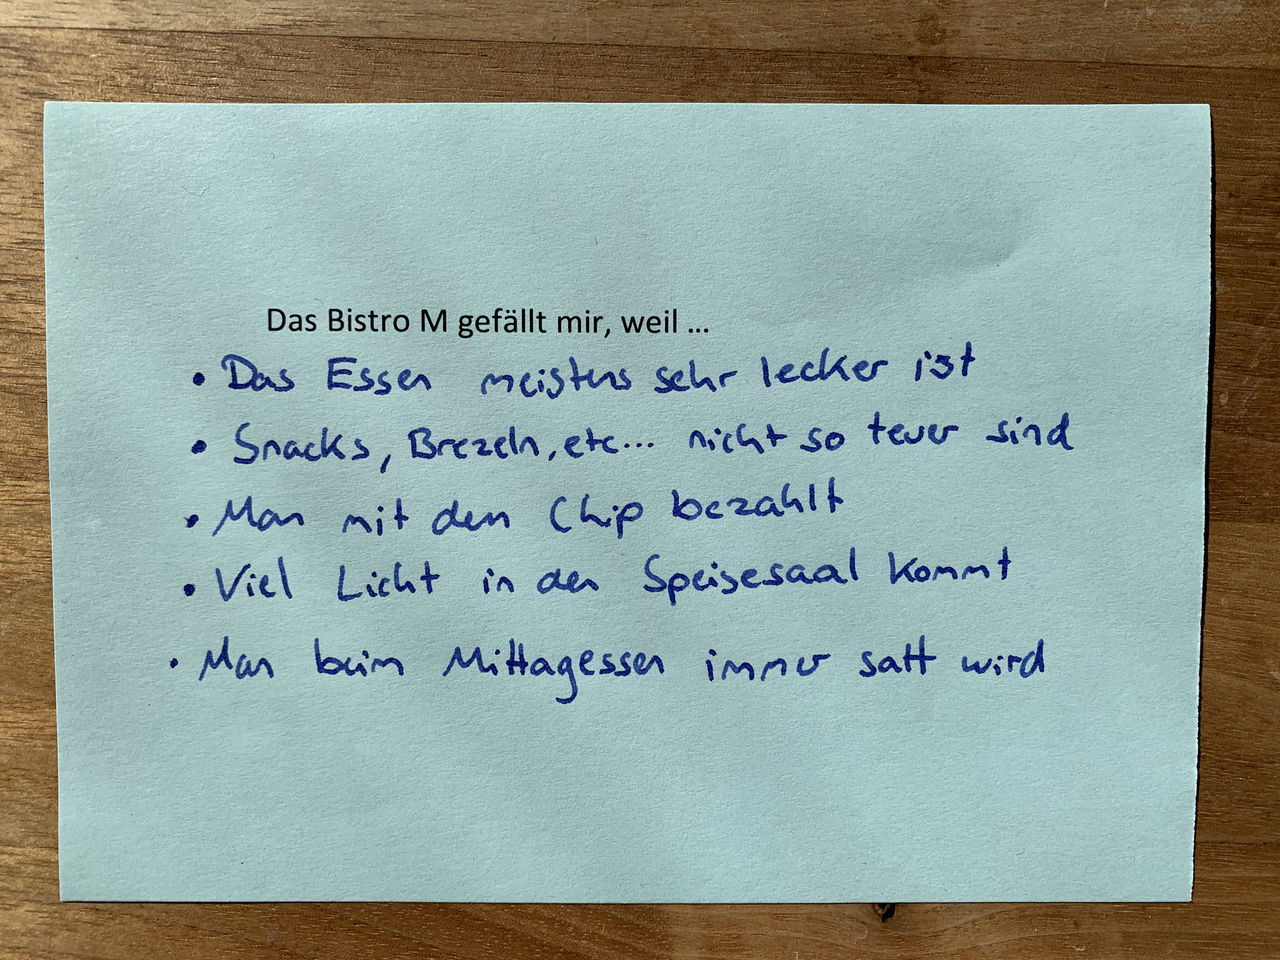 Das Bistro M gefällt mir, weil ...
• Das Essen meistens sehr lecker ist
• Snacks, Brezeln, etc... nicht so teuer sind
• Man mit dem Chip bezahlt
• Viel Licht in den Speisesaal kommt
• Man beim Mittagessen immer satt wird